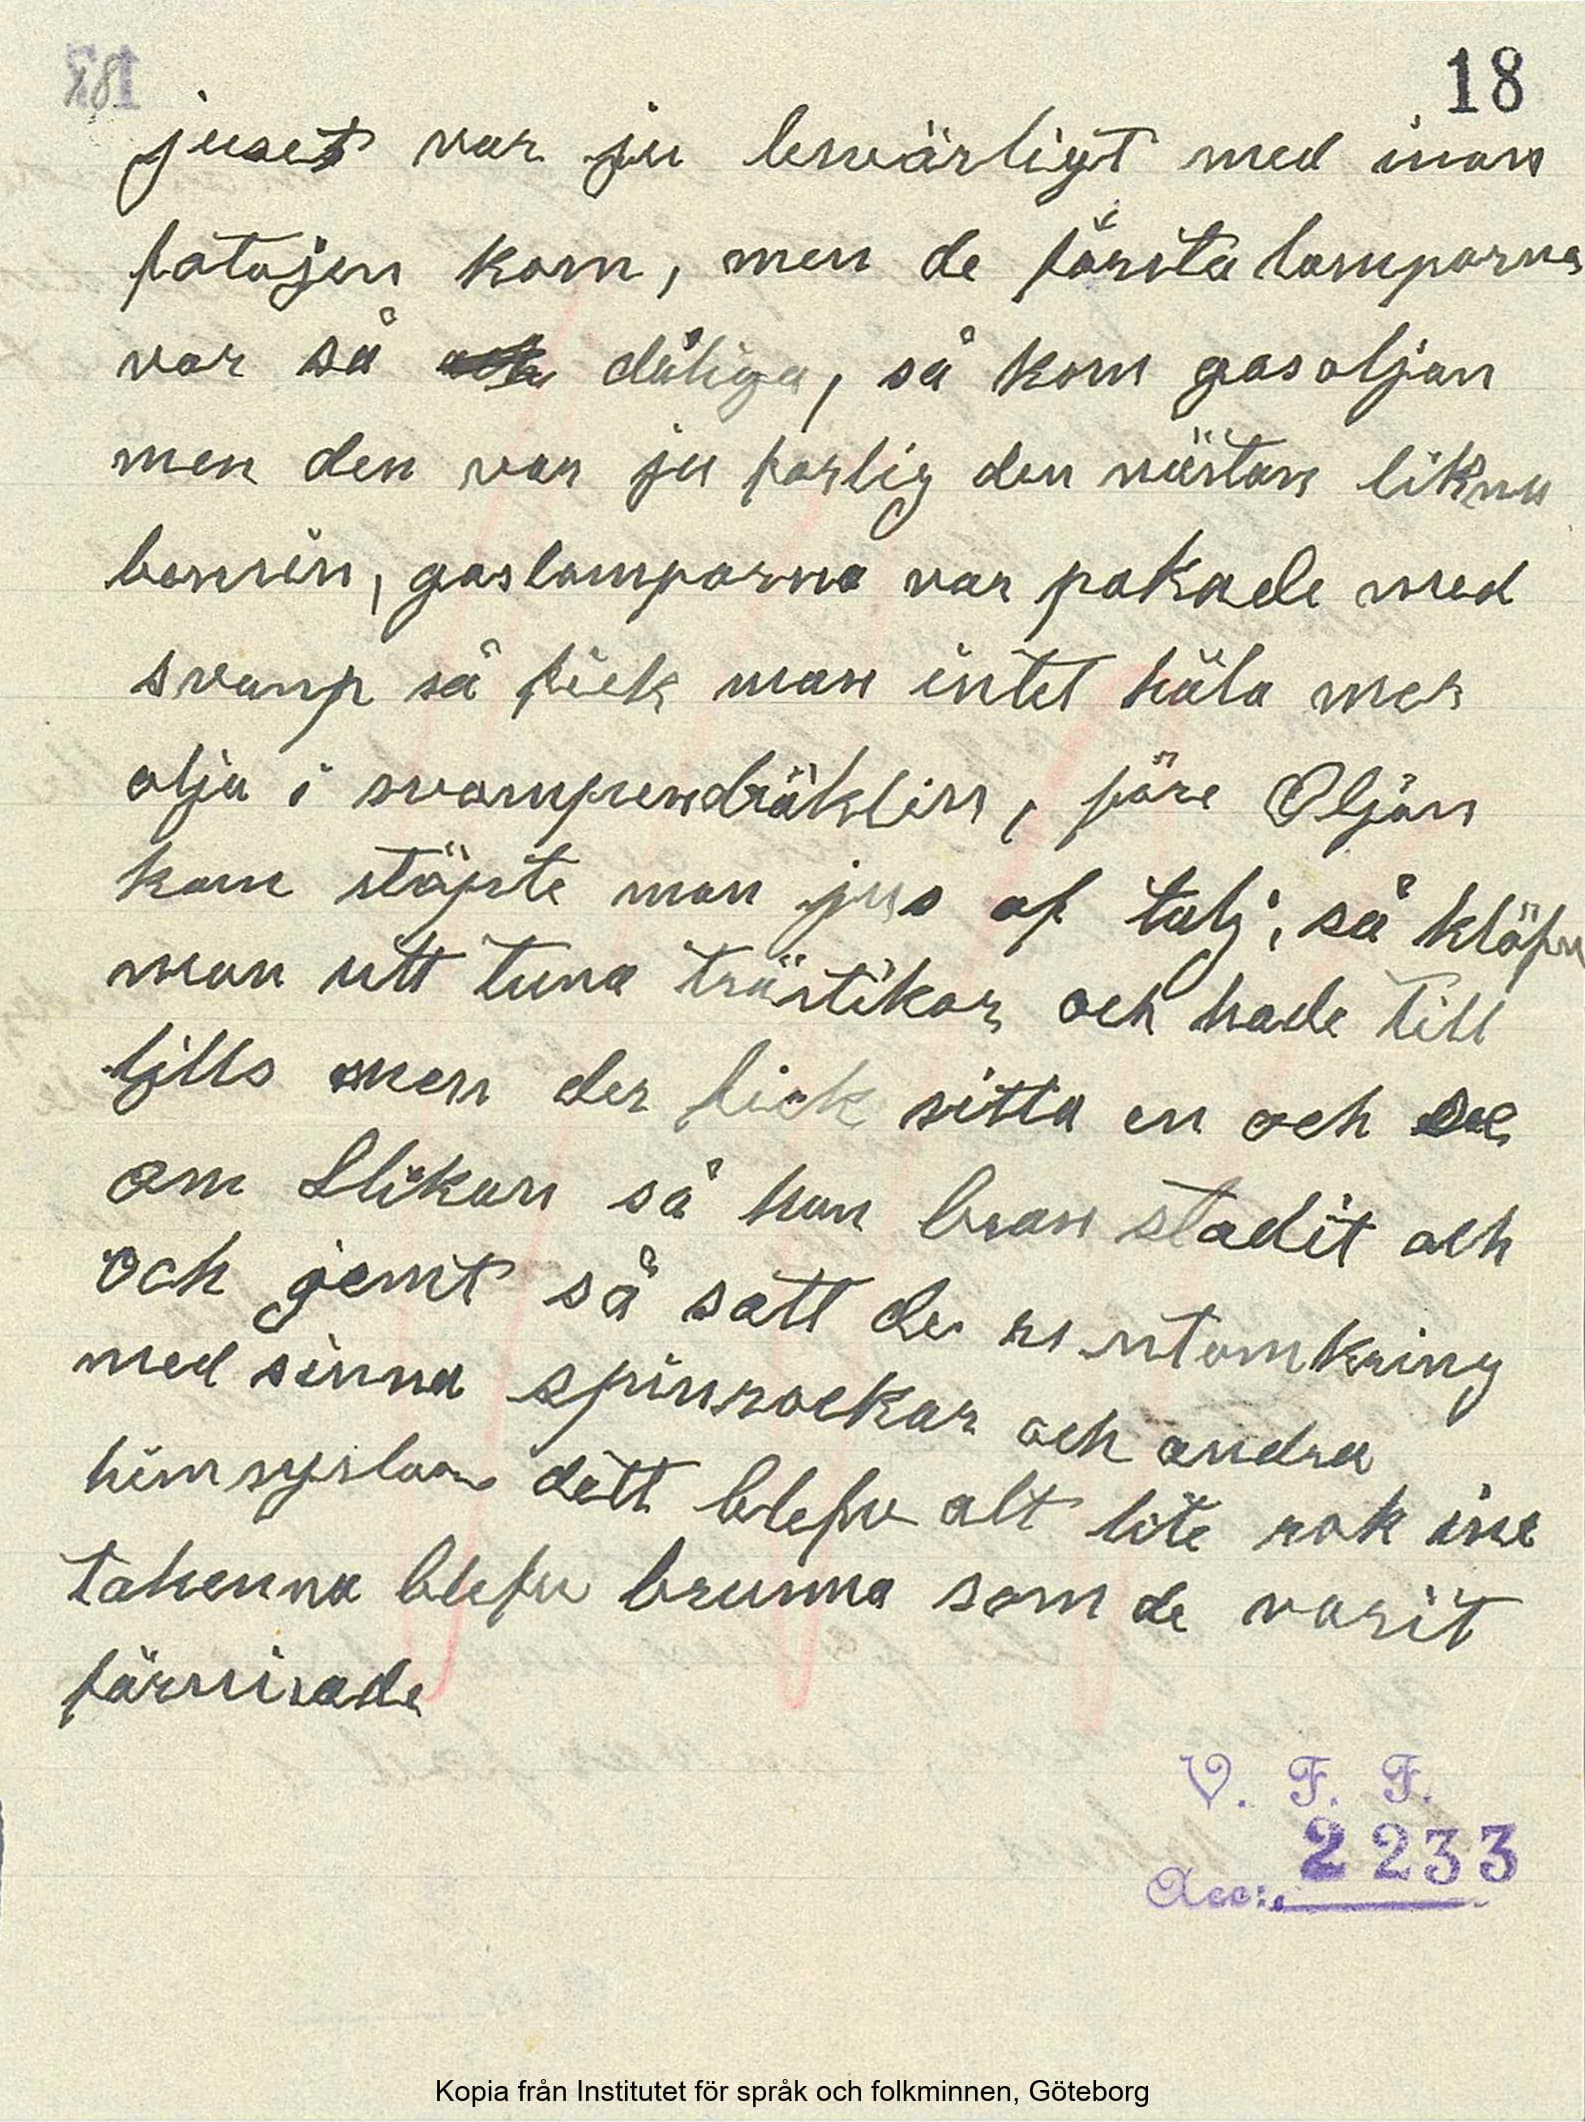 18
juset var ju beswärligt med inan
fotojen kom, men de första lamporna
var så dåliga, så kom gasoljan
men den var ju farlig den nästan likna
bensin, gaslamporna var pakade med
svamp så fick man intet häla mer
olja i svampen dräktin, före Oljan
kom stöpte man jus af talj, så klöfu
man utt tuna trästikor och hade till
ljus men der fick sitta en och se
om Stikan så han bran stadit och
och jemt så satt de runtomkring
med sinna spinrockar och andra
himsyslor dett blefu alt lite rök ine
takenna blefu brunna som de varit
färnisade
V. F. F.
Acc: 2233
Kopia från Institutet för språk och folkminnen, Göteborg